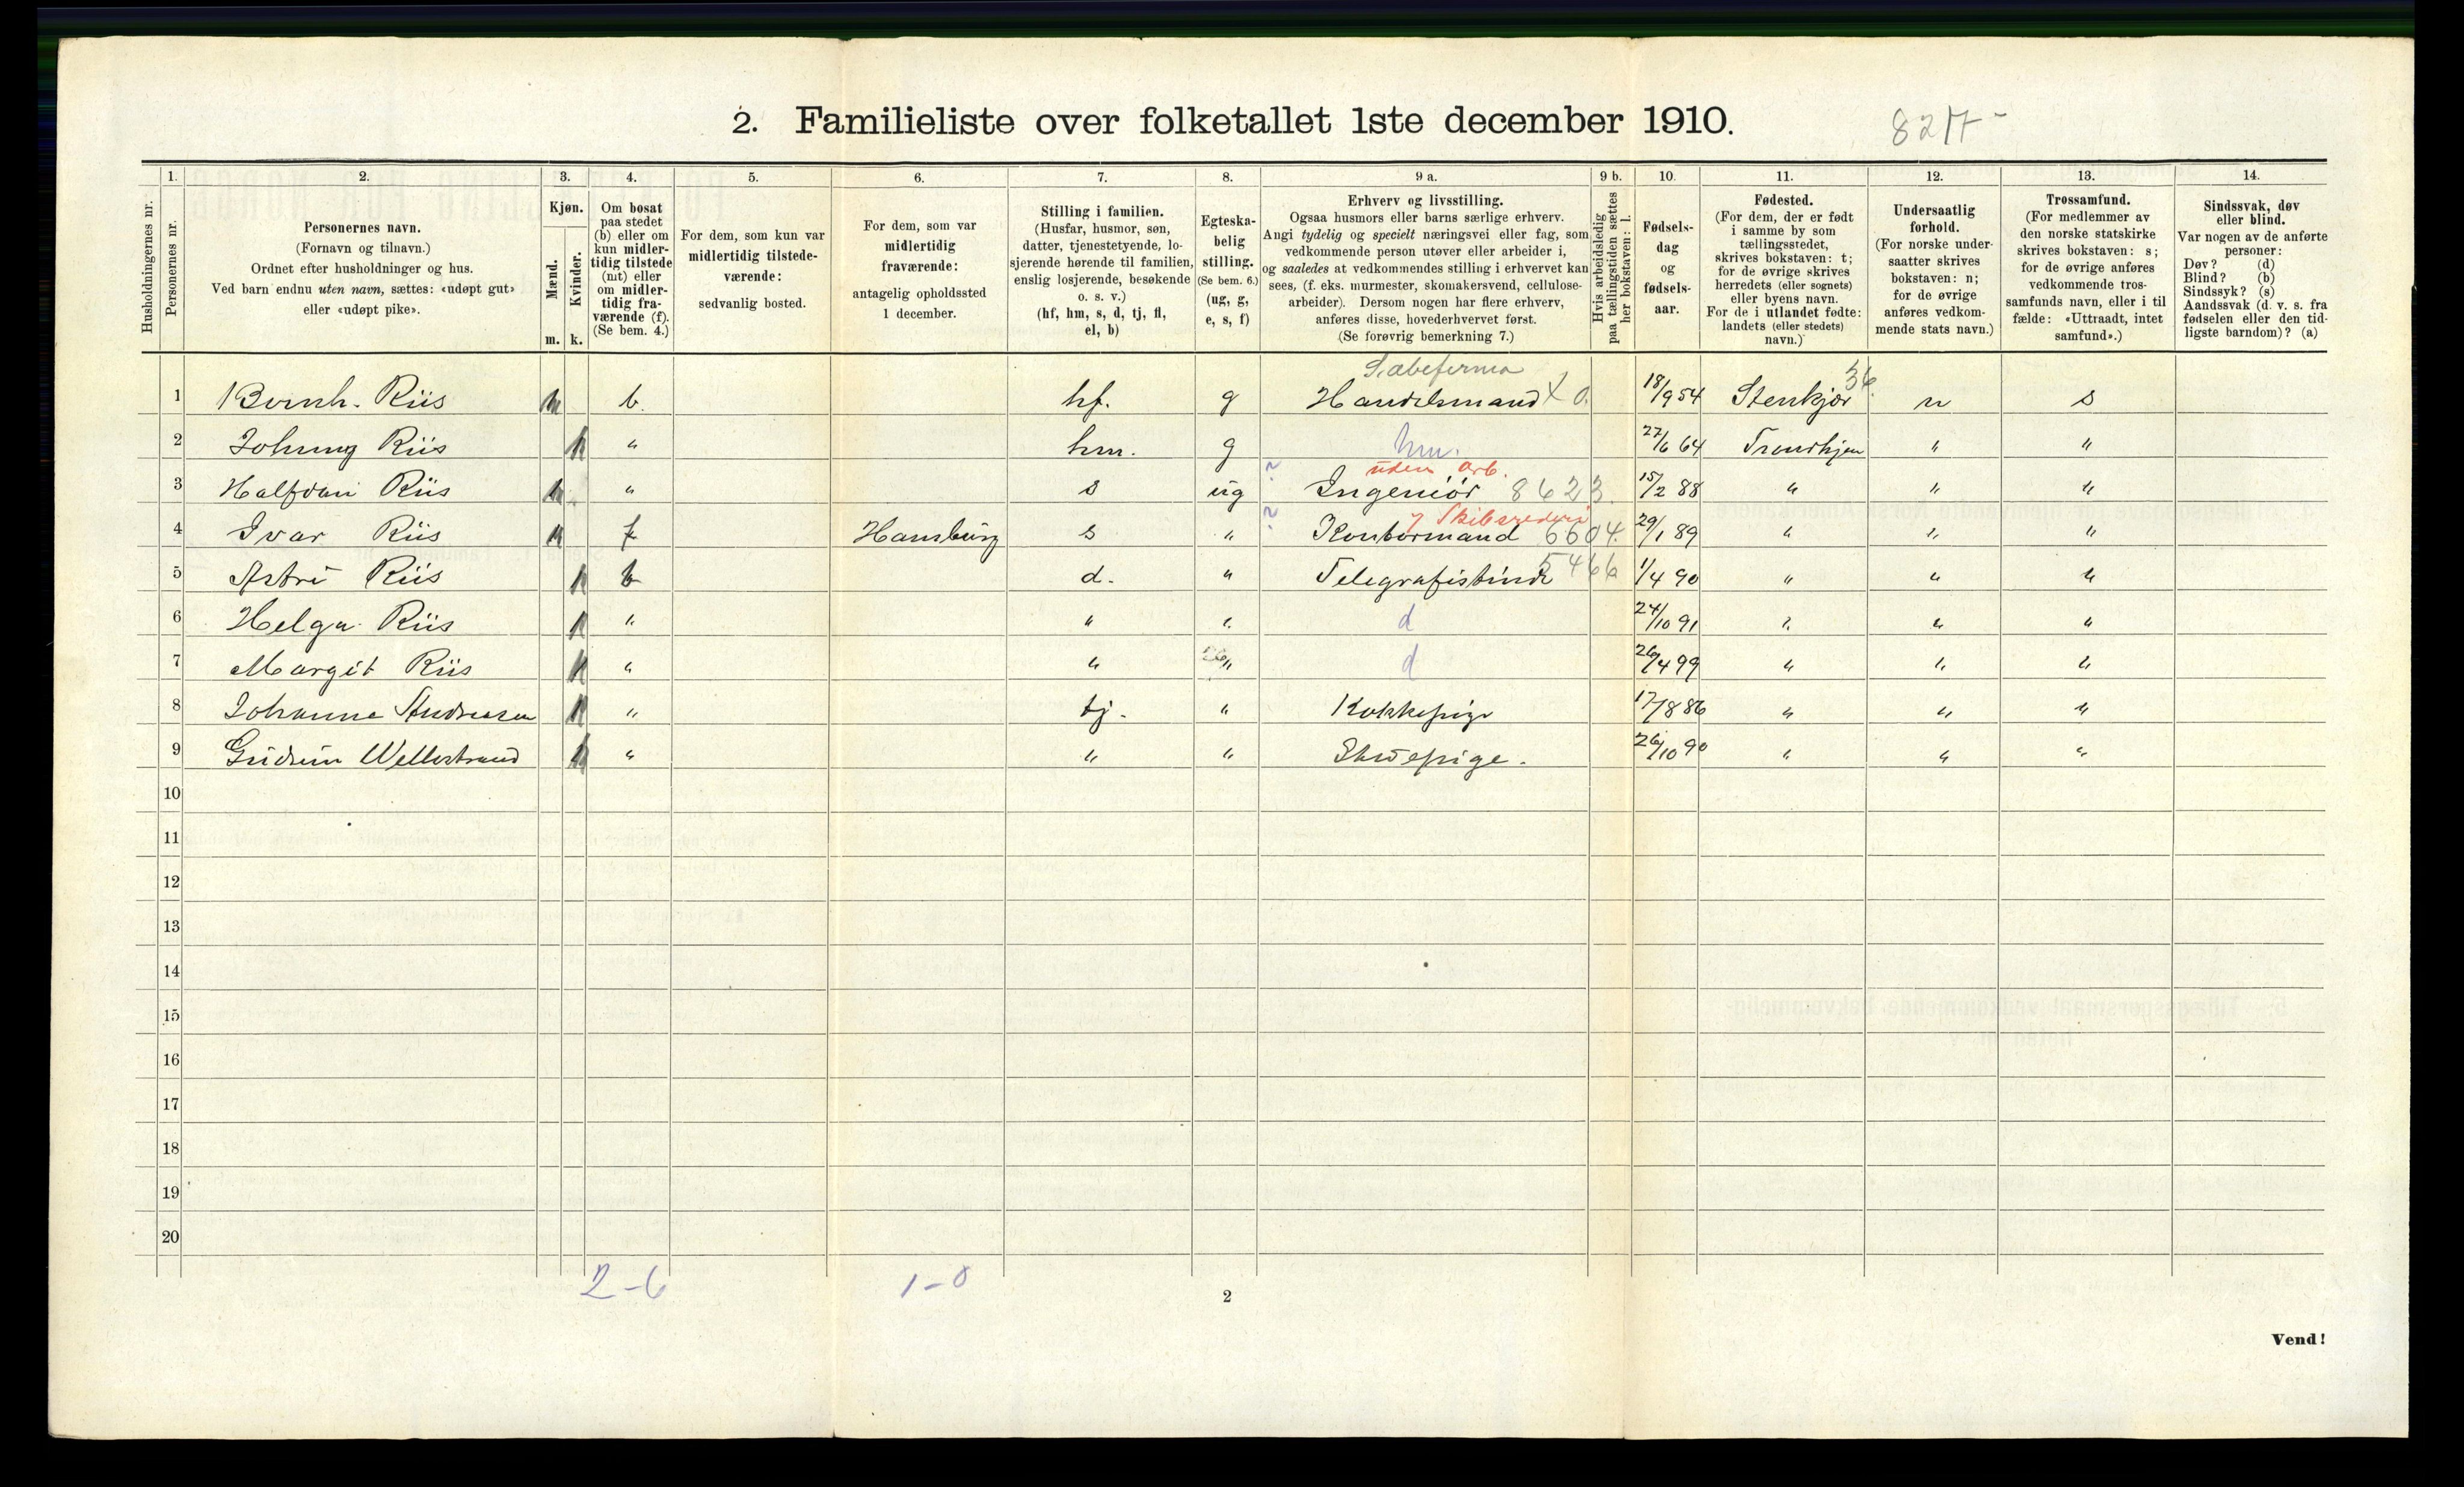 2. Familieliste over folketallet 1ste december 1910.
82 17 -
Husholdningernes nr.
1.
Personernes nr.
2.
Personernes navn.
(Fornavn og tilnavn.)
Ordnet efter husholdninger og hus.
Ved barn endnu uten navn, sættes: «udøpt gut»
eller «udøpt pike».
3.
Kjøn.
Mænd.
Kvinder.
m. k.
4.
Om bosat
paa stedet
(b) eller om
kun midler-
tidig tilstede
(mt) eller
om midler-
tidig fra-
værende (f).
(Se bem. 4.)
5.
For dem, som kun var
midlertidig tilstede-
værende:
sedvanlig bosted.
6.
For dem, som var
midlertidig
fraværende:
antagelig opholdssted
1 december.
7.
Stilling i familien.
(Husfar, husmor, søn,
datter, tjenestetyende, lo-
sjerende hørende til familien,
enslig losjerende, besøkende
o. s. v.)
(hf, hm, s, d, tj, fl,
el, b)
8.
Egteska-
belig
stilling.
(Se bem. 6.)
(ug, g,
e, s, f)
9 a.
Erhverv og livsstilling.
Ogsaa husmors eller barns særlige erhverv.
Angi tydelig og specielt næringsvei eller fag, som
vedkommende person utøver eller arbeider i,
og saaledes at vedkommendes stilling i erhvervet kan
sees, (f. eks. murmester, skomakersvend, cellulose-
arbeider). Dersom nogen har flere erhverv,
anføres disse, hovederhvervet først.
(Se forøvrig bemerkning 7.)
9 b.
Hvis arbeidsledig
paa tællingstiden sættes
her bokstaven: l.
10.
Fødsels-
dag
og
fødsels-
aar.
11.
Fødested.
(For dem, der er født
i samme by som
tællingsstedet,
skrives bokstaven: t;
for de øvrige skrives
herredets (eller sognets)
eller byens navn.
For de i utlandet fødte:
landets (eller stedets)
navn.)
12.
Undersaatlig
forhold.
(For norske under-
saatter skrives
bokstaven: n;
for de øvrige
anføres vedkom-
mende stats navn.)
13.
Trossamfund.
(For medlemmer av
den norske statskirke
skrives bokstaven: s;
for de øvrige anføres
vedkommende tros-
samfunds navn, eller i til
fælde: «Uttraadt, intet
samfund».)
14.
Sindssvak, døv
eller blind.
Var nogen av de anførte
personer:
Døv? (d)
Blind? (b)
Sindssyk? (s)
Aandssvak (d. v. s. fra
fødselen eller den tid-
ligste barndom)? (a)
1 Bernh. Riis b. hf. g Handelsmand X 0. 18/9 54 Stenkjær 36 n s
2 Johnny Riis " hm. g hm. 27/6 64 Trondhjem " "
uden arb.
3 Halfdan Riis " s ug ? Ingeniør 8623. 15/2 88 " " "
i Skibsrederi
4 Ivar Riis f Hamburg s " ? Kontormand 6604. 29/1 89 " " "
5 Astri Riis b d. " Telegrafistinde 5466 1/4 90 " " "
6 Helga Riis " " " d 24/10 91 " " "
7 Margit Riis " " " d 26/4 99 " " "
8 Johanne Andreasen " tj. " Kokkepige 17/8 86 " " "
9 Gudrun Wellestrand " " " Stuepige. 26/10 90 " " "
10
11
12
13
14
15
16
17
18
19
20
2-6 1-0
2
Vend!